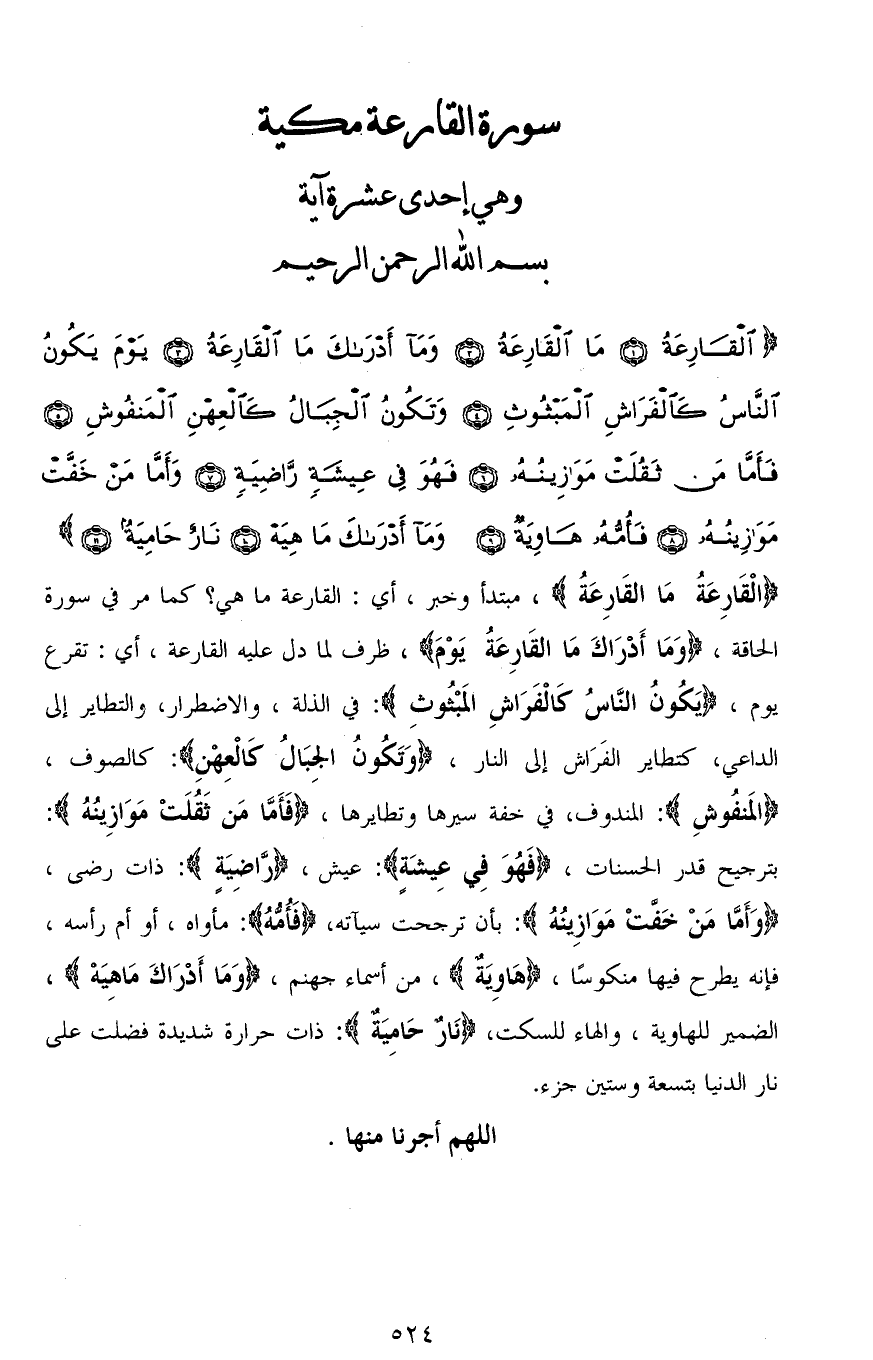 سورة القارعة مكية
وهي إحدى عشرة آية
بسم الله الرحمن الرحيم
﴿ ٱلْقَارِعَةُ ۝١ مَا ٱلْقَارِعَةُ ۝٢ وَمَآ أَدْرَىٰكَ مَا ٱلْقَارِعَةُ ۝٣ يَوْمَ يَكُونُ
ٱلنَّاسُ كَٱلْفَرَاشِ ٱلْمَبْثُوثِ ۝٤ وَتَكُونُ ٱلْجِبَالُ كَٱلْعِهْنِ ٱلْمَنفُوشِ ۝٥
فَأَمَّا مَن ثَقُلَتْ مَوَٰزِينُهُۥ ۝٦ فَهُوَ فِى عِيشَةٍ رَّاضِيَةٍ ۝٧ وَأَمَّا مَنْ خَفَّتْ
مَوَٰزِينُهُۥ ۝٨ فَأُمُّهُۥ هَاوِيَةٌ ۝٩ وَمَآ أَدْرَىٰكَ مَا هِيَهْ ۝١٠ نَارٌ حَامِيَةٌۢ ۝١١ ﴾
﴿الْقَارِعَةُ مَا القَارِعَةُ ﴾ ، مبتدأ وخبر ، أي : القارعة ما هي؟ كما مر في سورة
الحاقة ، ﴿وَمَا أَدْرَاكَ مَا القَارِعَةُ يَوْمَ﴾ ، ظرف لما دل عليه القارعة ، أي : تقرع
يوم ، ﴿يَكُونُ النَّاسُ كَالْفَرَاشِ المَبْثُوثِ ﴾: في الذلة ، والاضطرار، والتطاير إلى
الداعي، كتطاير الفَرَاش إلى النار ، ﴿وَتَكُونُ الجِبَالُ كَالْعِهْنِ﴾: كالصوف ،
﴿المَنفُوشِ ﴾: المندوف، في خفة سيرها وتطايرها ، ﴿فَأَمَّا مَن ثَقُلَتْ مَوَازِينُهُ ﴾:
بترجيح قدر الحسنات ، ﴿فَهُوَ فِي عِيشَةٍ﴾: عيش ، ﴿رَّاضِيَةٍ ﴾: ذات رضى ،
﴿وَأَمَّا مَنْ خَفَّتْ مَوَازِينُهُ ﴾: بأن ترجحت سيآته، ﴿فَأُمُّهُ﴾: مأواه ، أو أم رأسه ،
فإنه يطرح فيها منكوسًا ، ﴿هَاوِيَةٌ ﴾ ، من أسماء جهنم ، ﴿وَمَا أَدْرَاكَ مَاهِيَهْ ﴾ ،
الضمير للهاوية ، والهاء للسكت، ﴿نَارٌ حَامِيَةٌ ﴾: ذات حرارة شديدة فضلت على
نار الدنيا بتسعة وستين جزء.
اللهم أجرنا منها .
٥٢٤